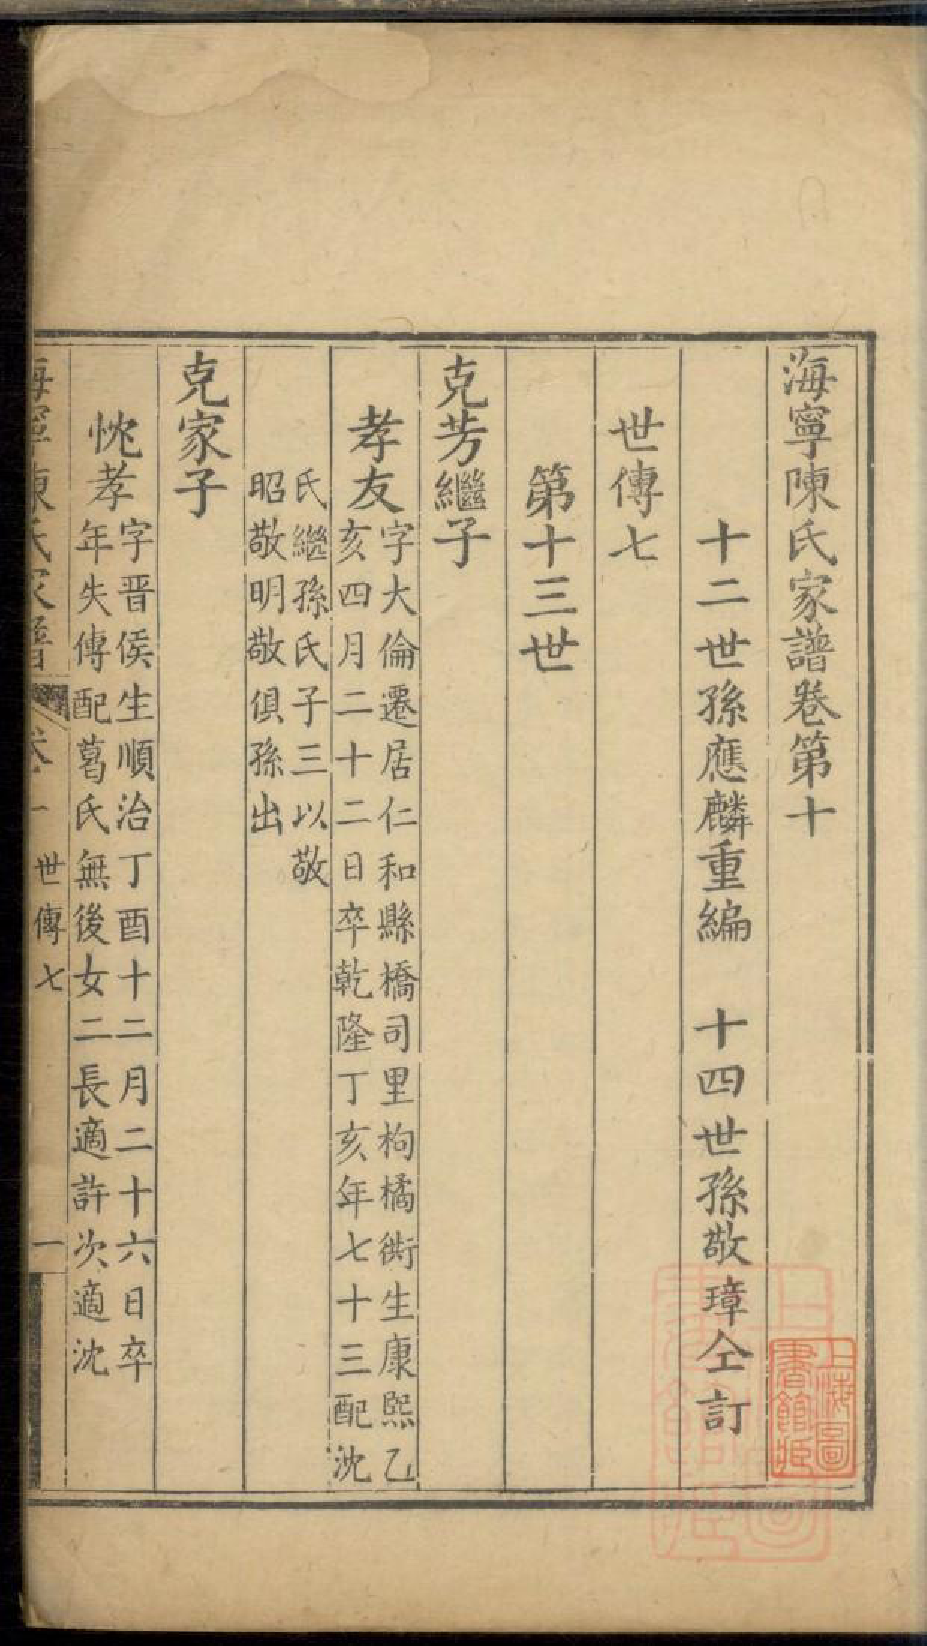 海寧陳氏家譜卷第十
十二世孫應麟重編　十四世孫敬璋仝訂
世傳七
第十三世
克芳繼子
孝友
字大倫遷居仁和縣橋司里枸橘衖生康熙乙
亥四月二十二日卒乾隆丁亥年七十三配沈
氏繼孫氏子三以敬
昭敬明敬俱孫出
克家子
恱孝
字晋侯生順治丁酉十二月二十六日卒
年失傳配葛氏無後女二長適許次適沈
海寧陳氏家譜
世傳七
一
上海圖
書館藏